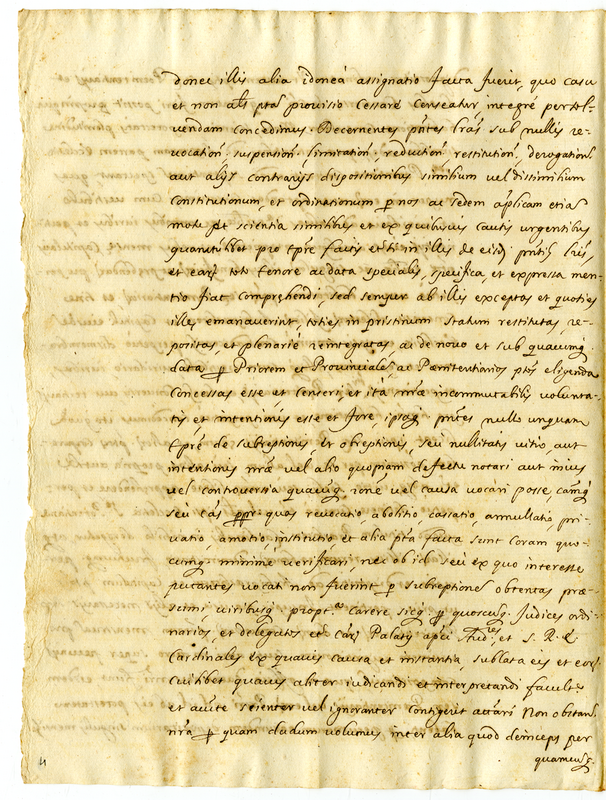 donec illis alia idonea assignatio facta fuerit, quo casu
et non als pta provisio Cessare Censeatur integré persol-
vendam concedimus. Decernentes pntes lras sub nullis re-
vocation. suspension. limitation. reduction. restitution. derogation.
aut alijs contrarijs dispositionibus similium vel dissimilium
Constitutionum, et ordinationum p nos ac sedem aplicam etia
motu scientia similibus et ex quibusvis causis urgentibus
quantumlibet pro tpre factis etiasi in illis de eisd. pntib. lris
et ear. toto tenore ac data specialis, specifica, et expressa men-
tio fiat Comprehendi, sed semper ab illis exceptas et quoties
illae emanaverint, toties in pristinum statum restitutas re-
positas, et plenarié reintegratas ac de novo et sub quacumq.
data p Priorem et Provinciales, ac Paenitentiarios ptos eligenda
Concessas esse et Censeri, et ita nrae incommutabilis volunta-
tis et intentionis esse et fore, ipsasq. pntes nullo unquam
tpre de subreptionis, et obreptionis, seu nullitatis vitio aut
intentionis nrae vel alio quopiam defectu notari aut in ius
vel controversia quacumq. rone vel causa vocari posse, camq.
seu cas ppr quas revocatio, abolitio, cassatio, annullatio, pri-
vatio, amotio, institutio et alia pta facta sunt Coram quo-
cumq. minimé verificari, nec ob id seu ex quo interesse
putantes vocati non fuerint p subreptionem obtentas prae-
sumi, viribusq. propt.a carere sicq. p quoscumq. Judices ordi-
narios, et delegatos et Palatij aplici Aud.res et S. R. E.
Cardinales ex quavis causa et instantia, sublata eis et eor.
Cuilibet quavis aliter iudicandi et interpretandi facultate
et scienter vel ignoranter Contigerit attari Non obstan.
nra p quam dudum volumus inter alia quod deinceps per
quamcumq.